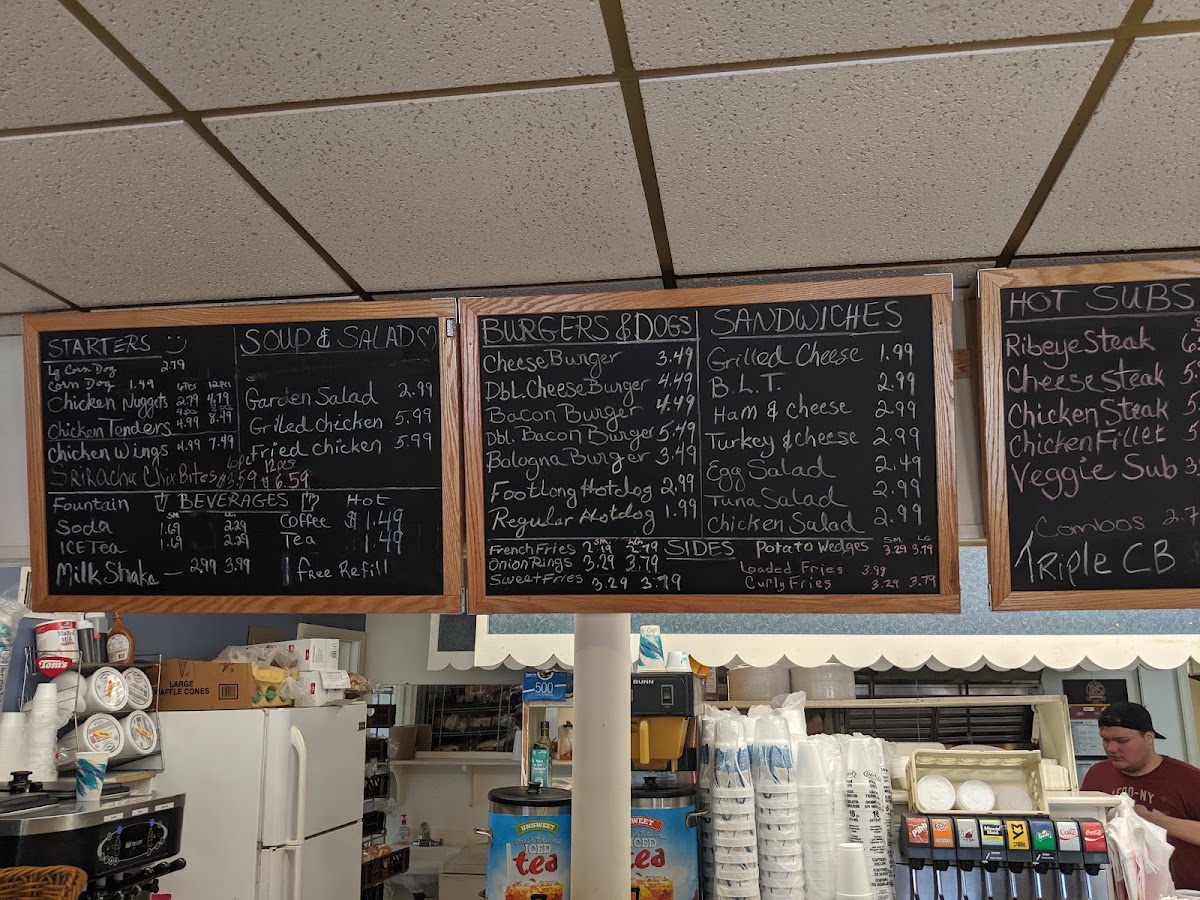 STARTERS
Lg Corn Dog 2.79
Corn Dog 1.99
6pcs 12pcs
Chicken Nuggets 2.79 4.79
Chicken Tenders 4.99 8.49
Chicken Wings 4.99 7.99
Sriracha Chix Bites 6pcs 12pcs
$3.59 $6.59
SOUP & SALAD
Garden Salad 2.99
Grilled Chicken 5.99
Fried Chicken 5.99
BEVERAGES
Fountain
SM LG
Soda 1.69 2.29
ICE Tea 1.69 2.29
Milk Shake — 2.99 3.99
Hot
Coffee $1.49
Tea 1.49
free Refill
BURGERS & DOGS
Cheese Burger 3.49
Dbl. Cheese Burger 4.49
Bacon Burger 4.49
Dbl. Bacon Burger 5.49
Bologna Burger 3.49
Footlong Hotdog 2.99
Regular Hotdog 1.99
SANDWICHES
Grilled Cheese 1.99
B.L.T. 2.99
Ham & cheese 2.99
Turkey & cheese 2.99
Egg Salad 2.49
Tuna Salad 2.99
Chicken Salad 2.99
SIDES
SM LG
French Fries 2.19 2.79
Onion Rings 3.29 3.79
Sweet Fries 3.29 3.79
SM LG
Potato Wedges 3.29 3.79
Loaded Fries 3.99
Curly Fries 3.29 3.79
HOT SUBS
Ribeye Steak
Cheese Steak
Chicken Steak
Chicken Fillet
Veggie Sub
Combos 2.7
Triple CB
Malted Milk
Tom's
LARGE
WAFFLE CONES
500
BUNN
UNSWEET
ICED
tea
SWEET
ICED
tea
AERO-NY
Pibb
Minute Maid
Sprite
Coke
Coca-Cola